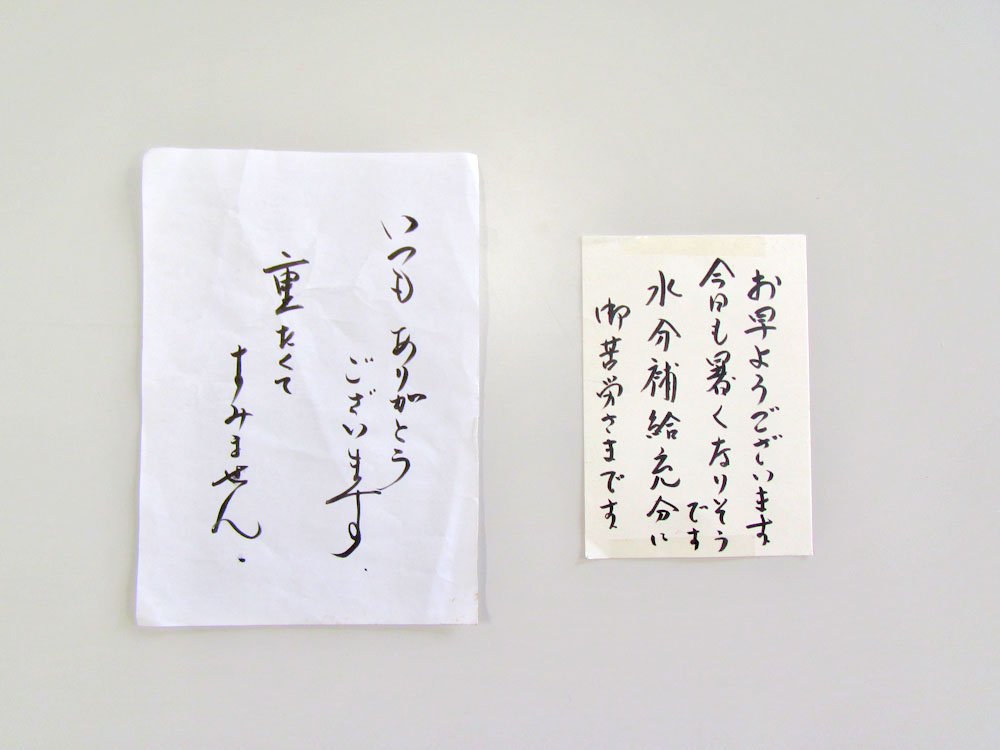 いつも ありがとう
ございます.
重たくて
すみません.
お早ようございます
今日も暑くなりそう
です
水分補給充分に
御苦労さまです